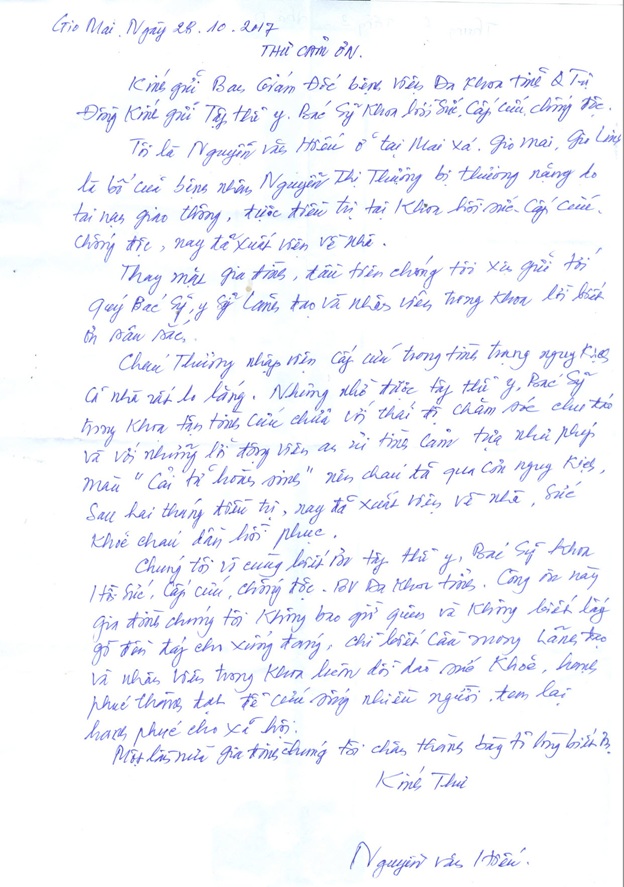 Gio Mai, Ngày 28.10.2017
THƯ CẢM ƠN.
Kính gửi Ban Giám Đốc bệnh viện Đa Khoa tỉnh Q Trị
Đồng Kính gửi Tập thể y. Bác Sỹ Khoa hồi Sức, Cấp cứu, chống độc.
Tôi là Nguyễn Văn Hiếu ở tại Mai xá. Gio mai, Gio Linh
là bố của bệnh nhân Nguyễn Thị Thương bị thương nặng do
tai nạn giao thông, được điều trị tại Khoa hồi sức - Cấp cứu -
chống độc, nay đã xuất viện về nhà.
Thay mặt gia đình, đầu tiên chúng tôi xin gửi tới
quý Bác Sỹ, y Sỹ Lãnh đạo và nhân viên trong Khoa lời biết
ơn sâu sắc.
Cháu Thương nhập viện Cấp cứu trong tình trạng nguy Kịch
cả nhà rất lo lắng. Nhưng nhờ được tập thể y, Bác Sỹ
trong Khoa tận tình cứu chữa với thái độ chăm sóc chu đáo
và với những lời động viên an ủi tình cảm tựa như phép
màu "Cải tử hoàn sinh" nên cháu đã qua cơn nguy Kịch,
Sau hai tháng điều trị, nay đã xuất viện về nhà, Sức
Khoẻ cháu dần hồi phục.
Chúng tôi vô cùng biết ơn tập thể y, Bác Sỹ Khoa
Hồi Sức, Cấp cứu, chống độc. BV Đa Khoa tỉnh. Công ơn này
gia đình chúng tôi Không bao giờ quên và Không biết lấy
gì đền đáp cho xứng đáng, chỉ biết Cầu mong Lãnh đạo
và nhân viên trong Khoa luôn dồi dào sức Khoẻ, hạnh
phúc thành đạt để cứu sống nhiều người. đem lại
hạnh phúc cho xã hội.
Một lần nữa gia đình chúng tôi chân thành bày tỏ lòng biết ơn
Kính Thư
Nguyễn Văn Hiếu.